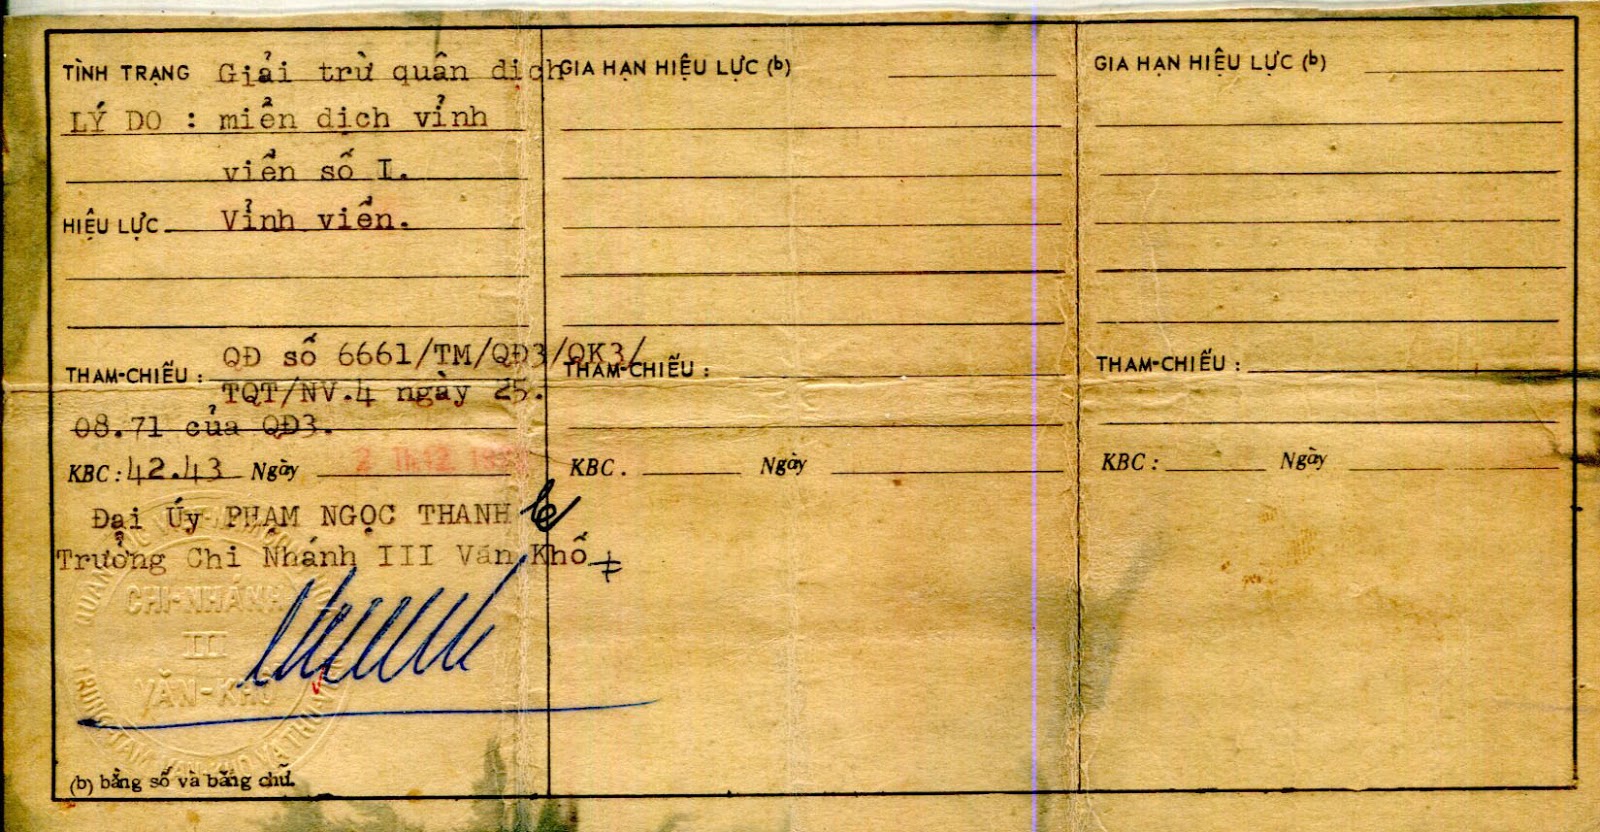 TÌNH TRẠNG Giải trừ quân dịch
LÝ DO : miển dịch vỉnh
viển số I.
HIỆU LỰC Vỉnh viển.
THAM-CHIẾU : QĐ số 6661/TM/QĐ3/QK3/
TQT/NV.4 ngày 25.
08.71 của QĐ3.
KBC : 42.43 Ngày 2 TH.12
Đại Úy PHẠM NGỌC THANH
Trưởng Chi Nhánh III Văn Khố
CHI-NHÁNH
III
VĂN-KHỐ
TRUNG TÂM VĂN KHỐ VÀ
(b) bằng số và bằng chữ.
GIA HẠN HIỆU LỰC (b)
THAM-CHIẾU :
KBC . Ngày
GIA HẠN HIỆU LỰC (b)
THAM-CHIẾU :
KBC : Ngày